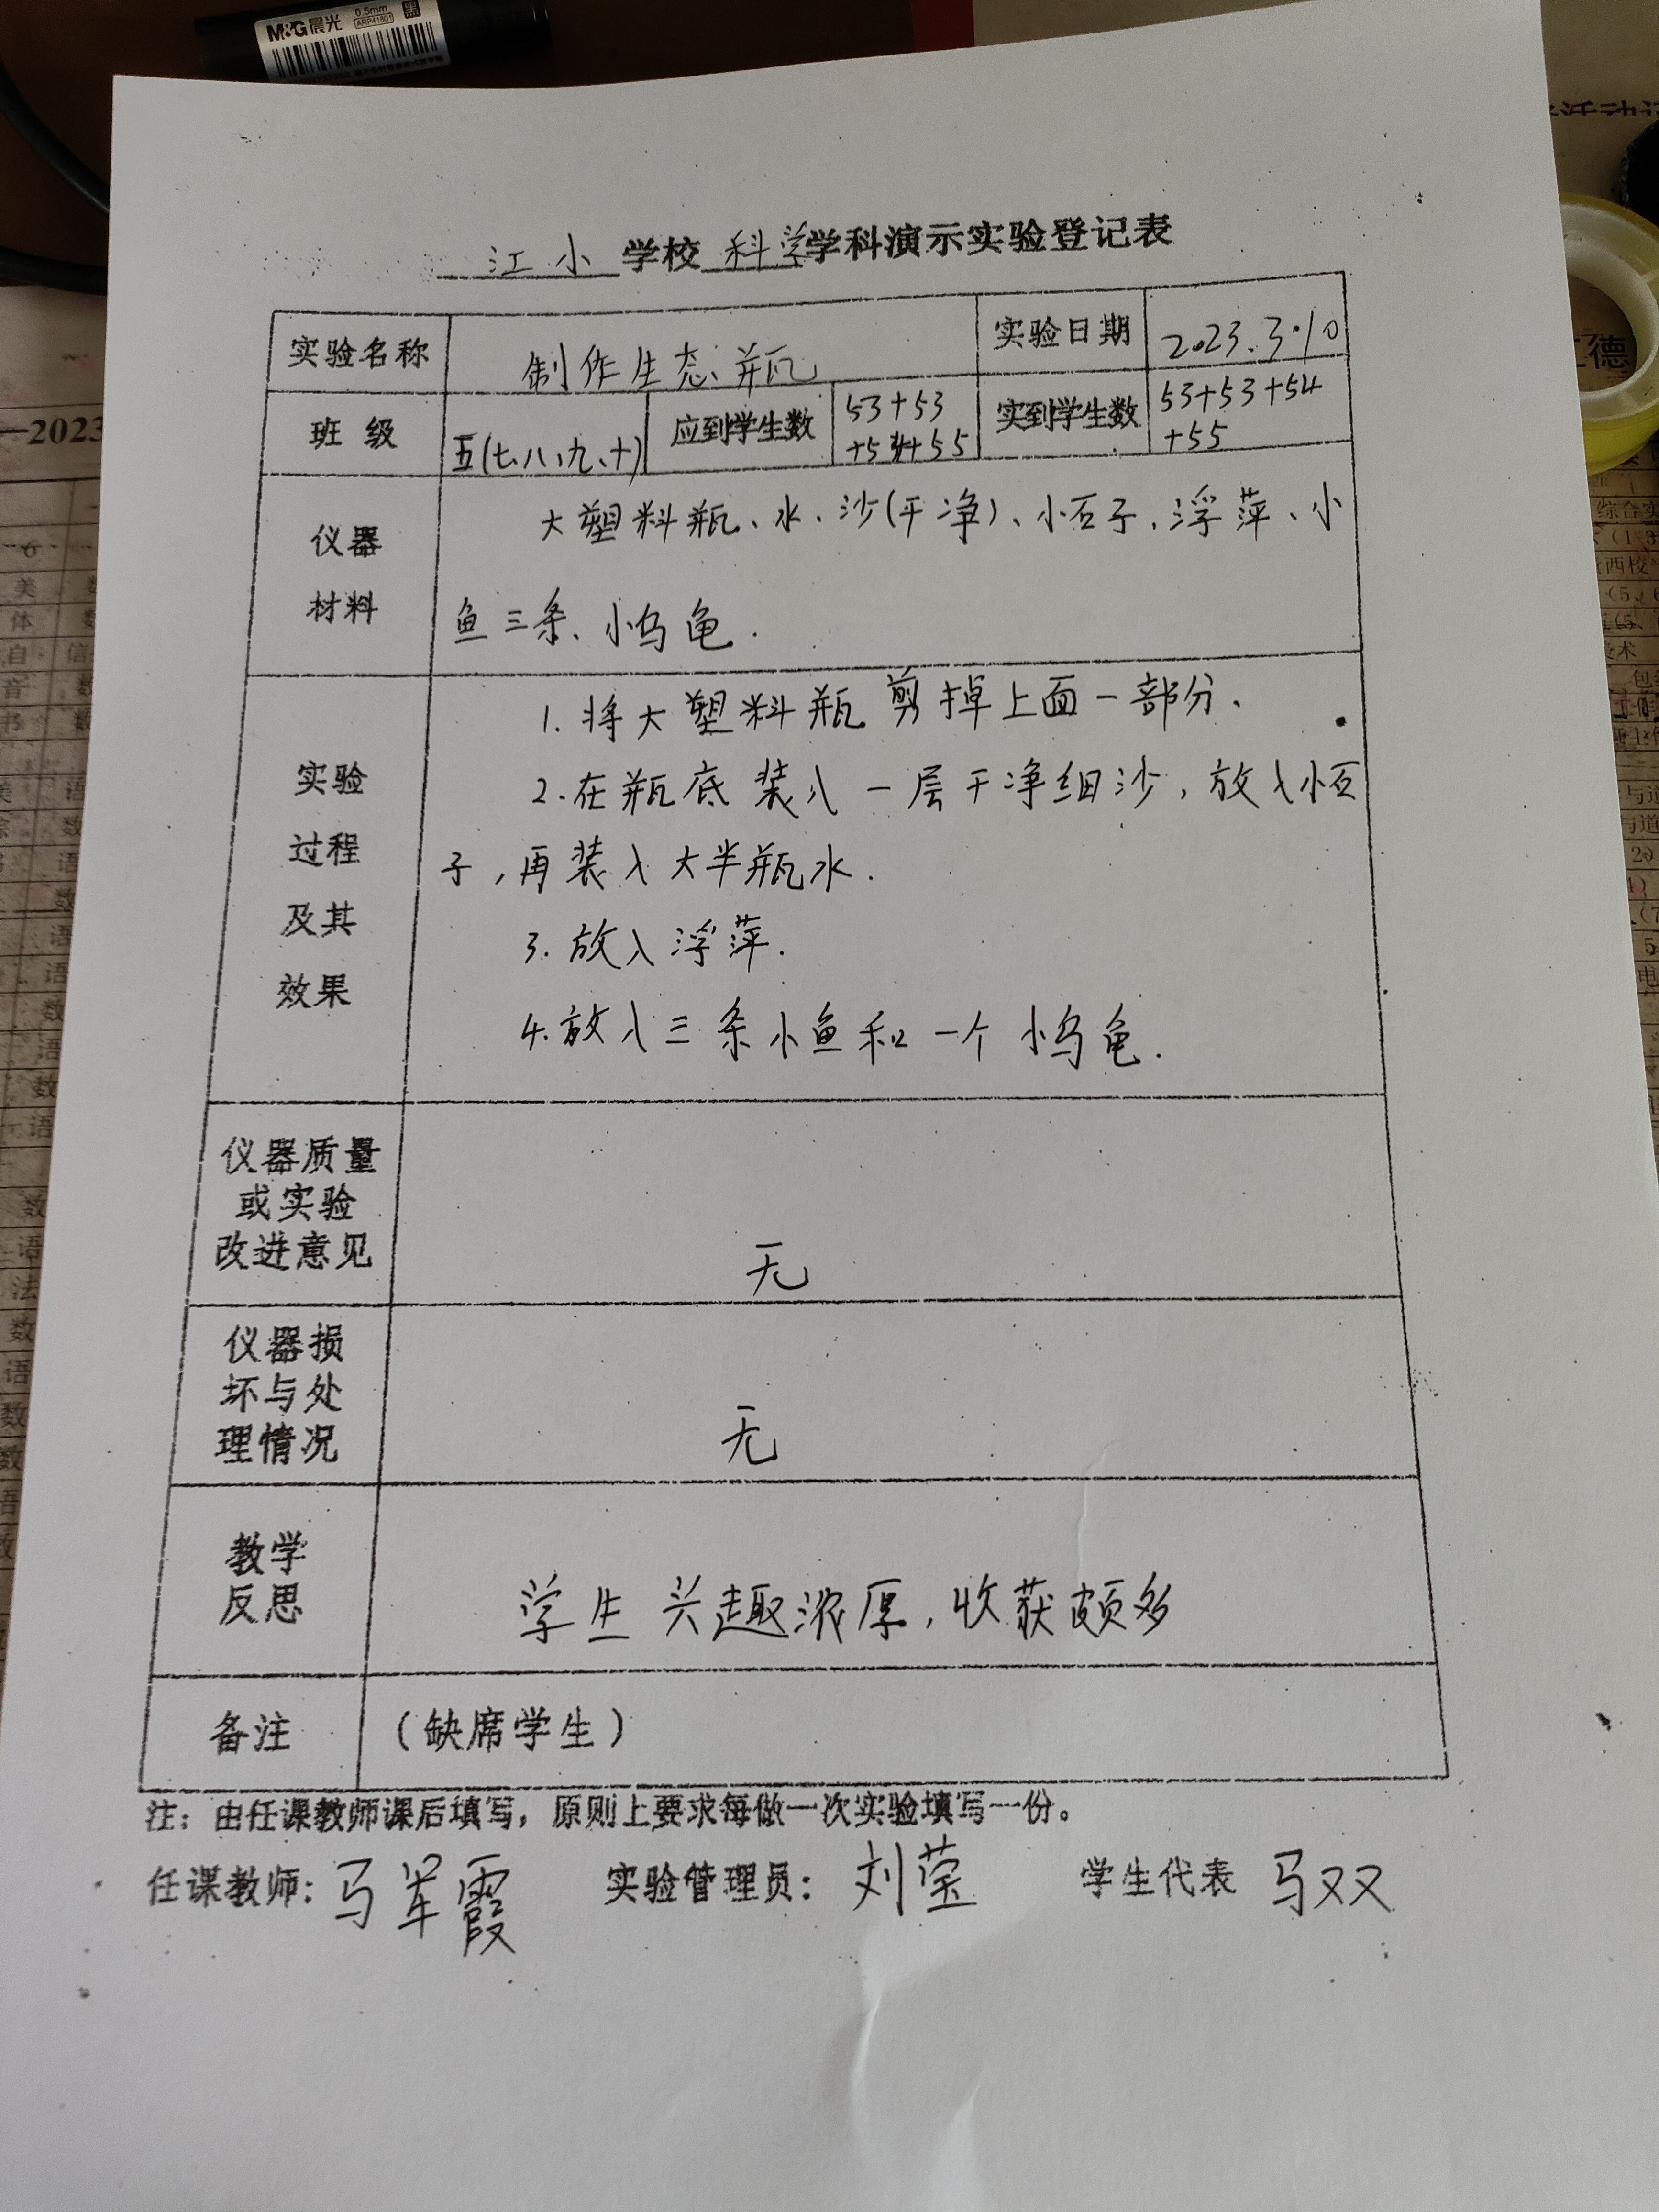 M&G晨光 0.5mm ARP41801 黑
江小学校科学学科演示实验登记表
实验名称 制作生态瓶 实验日期 2023.3.10
班级 五(七、八、九、十) 应到学生数 53+53+54+55 实到学生数 53+53+54+55
仪器材料
大塑料瓶、水、沙(干净)、小石子、浮萍、小
鱼三条、小乌龟.
实验过程及其效果
1.将大塑料瓶剪掉上面一部分.
2.在瓶底装入一层干净细沙,放入小石
子,再装入大半瓶水.
3.放入浮萍.
4.放入三条小鱼和一个小乌龟.
仪器质量
或实验
改进意见
无
仪器损
坏与处
理情况
无
教学
反思
学生兴趣浓厚,收获颇多
备注 (缺席学生)
注:由任课教师课后填写,原则上要求每做一次实验填写一份。
任课教师:马军霞 实验管理员:刘莹 学生代表 马双